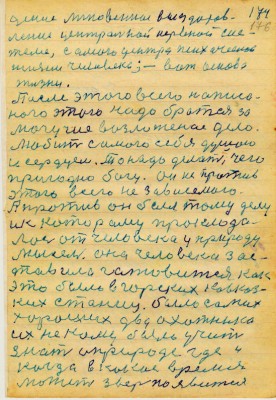 171
176
цение мгновенное выздоров-
ление центральной нервной сис-
теме, самого центра психической
жизни человека; – вот основа
жизни.
После этого всего написа-
ного этого надо братся за
могучие возложеное дело.
Любить самого себя душою
и сердцем. Тонядо делать, чего
пригодно богу. он не против
этого всего не зависемого.
А против он было тому делу
ик которому прислода-
лос от человека у природу
мысен. она человека зас-
тавила готовится как
это было в горских кавказ-
ких станиц. было самых
хороших два охотника
их не кому было учит
знат о природе где и
когда в какое время
может звер появится